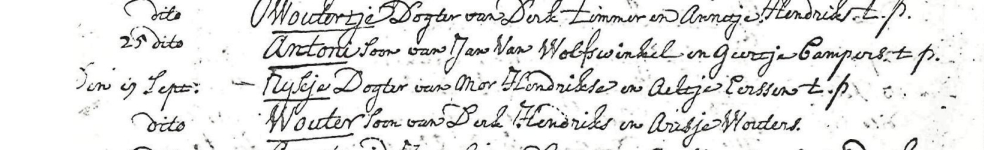 dito Woutertje Dogter van Derk Timmer en Annatje Hendriks. t. p.
25 dito Antoni soon van Jan Van Wolfswinkel en Geertje Campers. t p.
Den Sept: — Rijkje Dogter van Mor Hendrikse en Aeltje Eerssen t. p
dito Wouter soon van Derk Hendriks en Aartje Wouters.